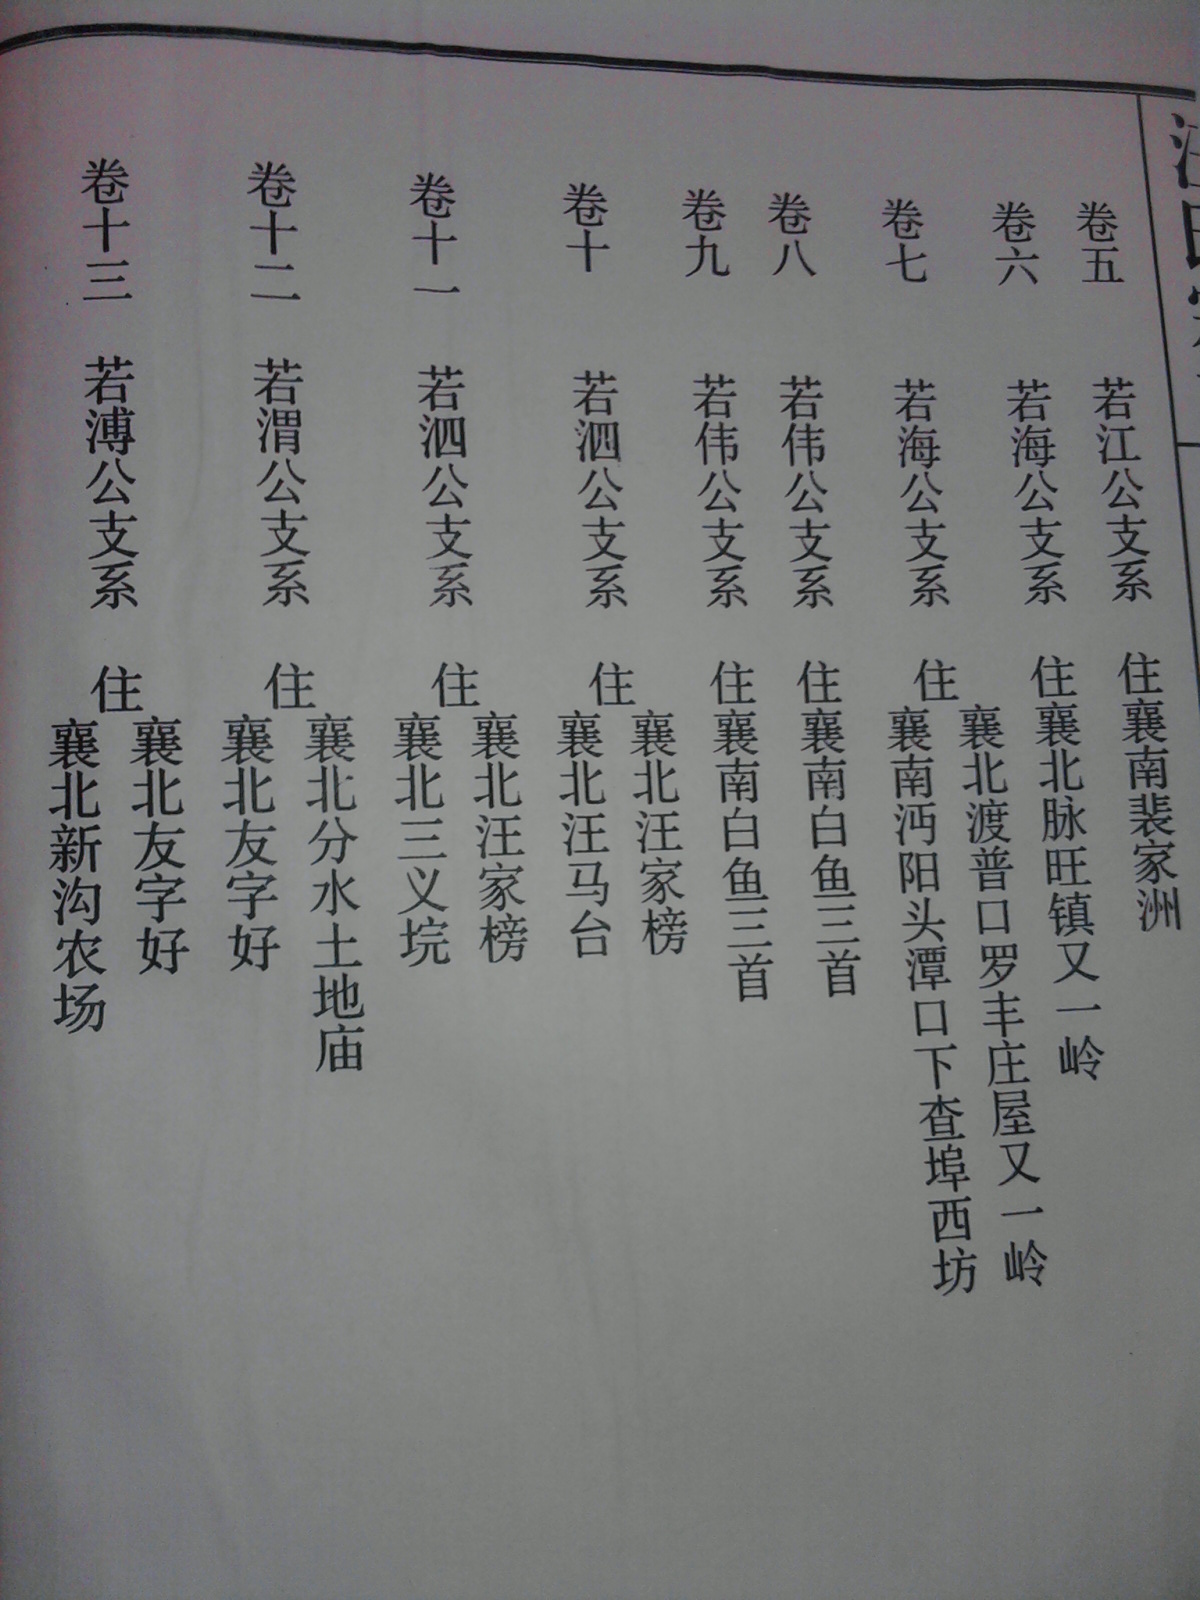 汪氏宗
卷五 若江公支系 住襄南裴家洲
卷六 若海公支系 住襄北脉旺镇又一岭
卷七 若海公支系 住
襄北渡普口罗丰庄屋又一岭
襄南沔阳头潭口下查埠西坊
卷八 若伟公支系 住襄南白鱼三首
卷九 若伟公支系 住襄南白鱼三首
卷十 若泗公支系 住
襄北汪家榜
襄北汪马台
卷十一 若泗公支系 住
襄北汪家榜
襄北三义垸
卷十二 若渭公支系 住
襄北分水土地庙
襄北友字好
卷十三 若溥公支系 住
襄北友字好
襄北新沟农场